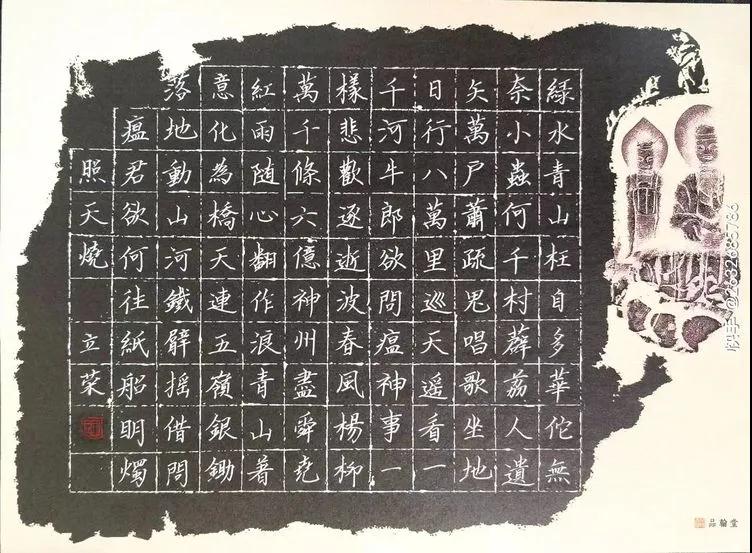 綠水青山枉自多華佗無
奈小蟲何千村薜荔人遺
矢萬戶蕭疏鬼唱歌坐地
日行八萬里巡天遥看一
千河牛郎欲問瘟神事一
樣悲歡逐逝波春風楊柳
萬千條六億神州盡舜堯
紅雨随心翻作浪青山著
意化為橋天連五嶺銀鋤
落地動山河鐵臂摇借問
瘟君欲何往紙船明燭
照天燒 立荣
品翰堂
快手 @2632685786